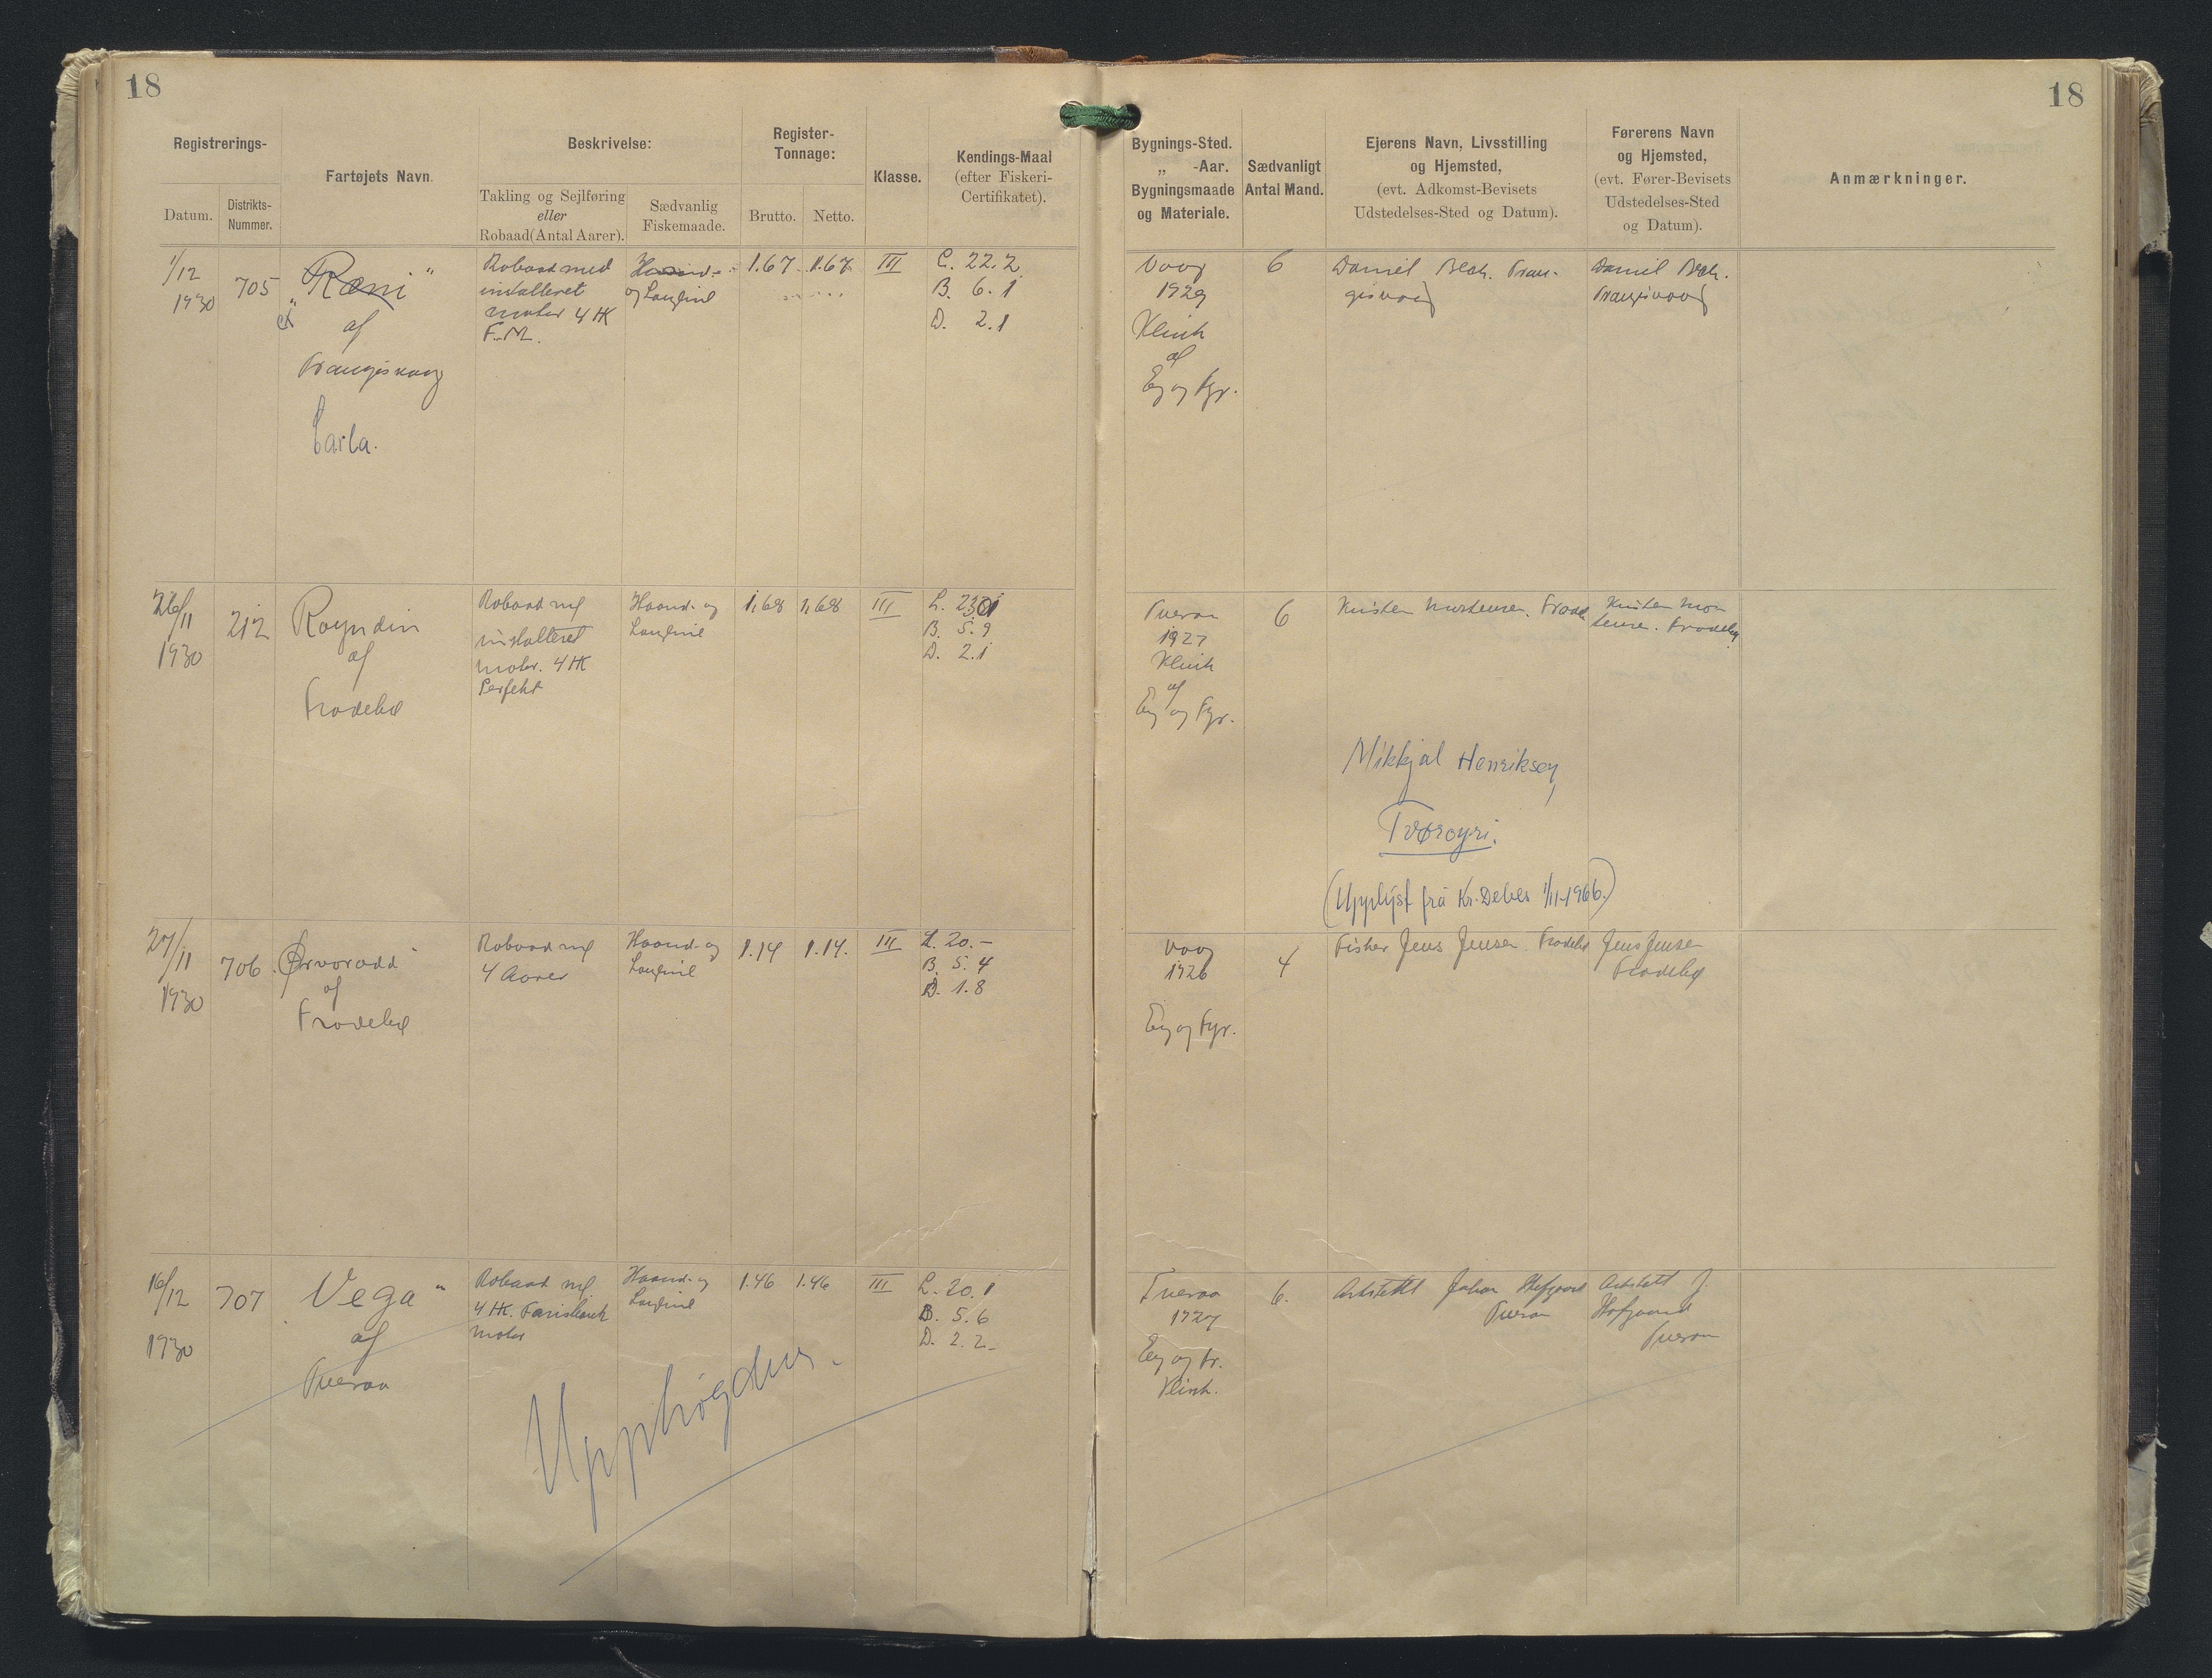 18
18
Registrerings-
Datum.
Distrikts-
Nummer.
Fartøjets Navn.
Beskrivelse:
Takling og Sejlføring
eller
Robaad (Antal Aarer).
Sædvanlig
Fiskemaade.
Register-
Tonnage:
Brutto.
Netto.
Klasse.
Kendings-Maal
(efter Fiskeri-
Certifikatet).
Bygnings-Sted.
„ -Aar.
Bygningsmaade
og Materiale.
Sædvanligt
Antal Mand.
Ejerens Navn, Livsstilling
og Hjemsted,
(evt. Adkomst-Bevisets
Udstedelses-Sted og Datum).
Førerens Navn
og Hjemsted,
(evt. Fører-Bevisets
Udstedelses-Sted
og Datum).
Anmærkninger.
1/12
1930
705
"Ræni"
af
Trangisvaag
Carla.
Robaad med
installeret
motor 4 HK
F.M.
Haand-
og Langline
1.67
1.67
III
L. 22.2
B. 6.1
D. 2.1
Vaag
1929
Klink
af
Eg og Fyr.
6
Daniel Bech. Tran-
gisvaag
Daniel Bech.
Trangisvaag
26/11
1930
212
Royndin
af
Frodebø
Robaad m/
installeret
motor. 4 HK
Perfekt
Haand- og
Langline
1,68
1,68
III
B. 5.9
D. 2.1
Tveraa
1927
Klink
af
Eg og Fyr.
6
Kristen Mortensen. Frodebø
Kristen Mor
tensen. Frodebø
Mikkjal Henriksen,
Tvøroyri.
(Upplýst frá Kr. Debes 1/11-1966.)
27/11
1930
706
Ørvorodd
af
Frodebø
Robaad m/
4 Aarer
Haand- og
Langline
1.14
1.14.
III
L. 20.-
B. 5.4
D. 1.8
Vaag
1926
Eg og Fyr.
4
Fisker Jens Jensen. Frodebø
Jens Jensen
Frodebø
16/12
1930
707
Vega"
af
Tveraa
Robaad m/
4 HK.
motor
Haand- og
Langline
1.46
1.46
III
L. 20.1
B. 5.6
D. 2.2
Upphøgdur.
Tveraa
1927
Eg og Fr.
Klink.
6.
Arkitekt Johan Hofgaard
Tveraa
Arkitekt J.
Hofgaard
Tveraa